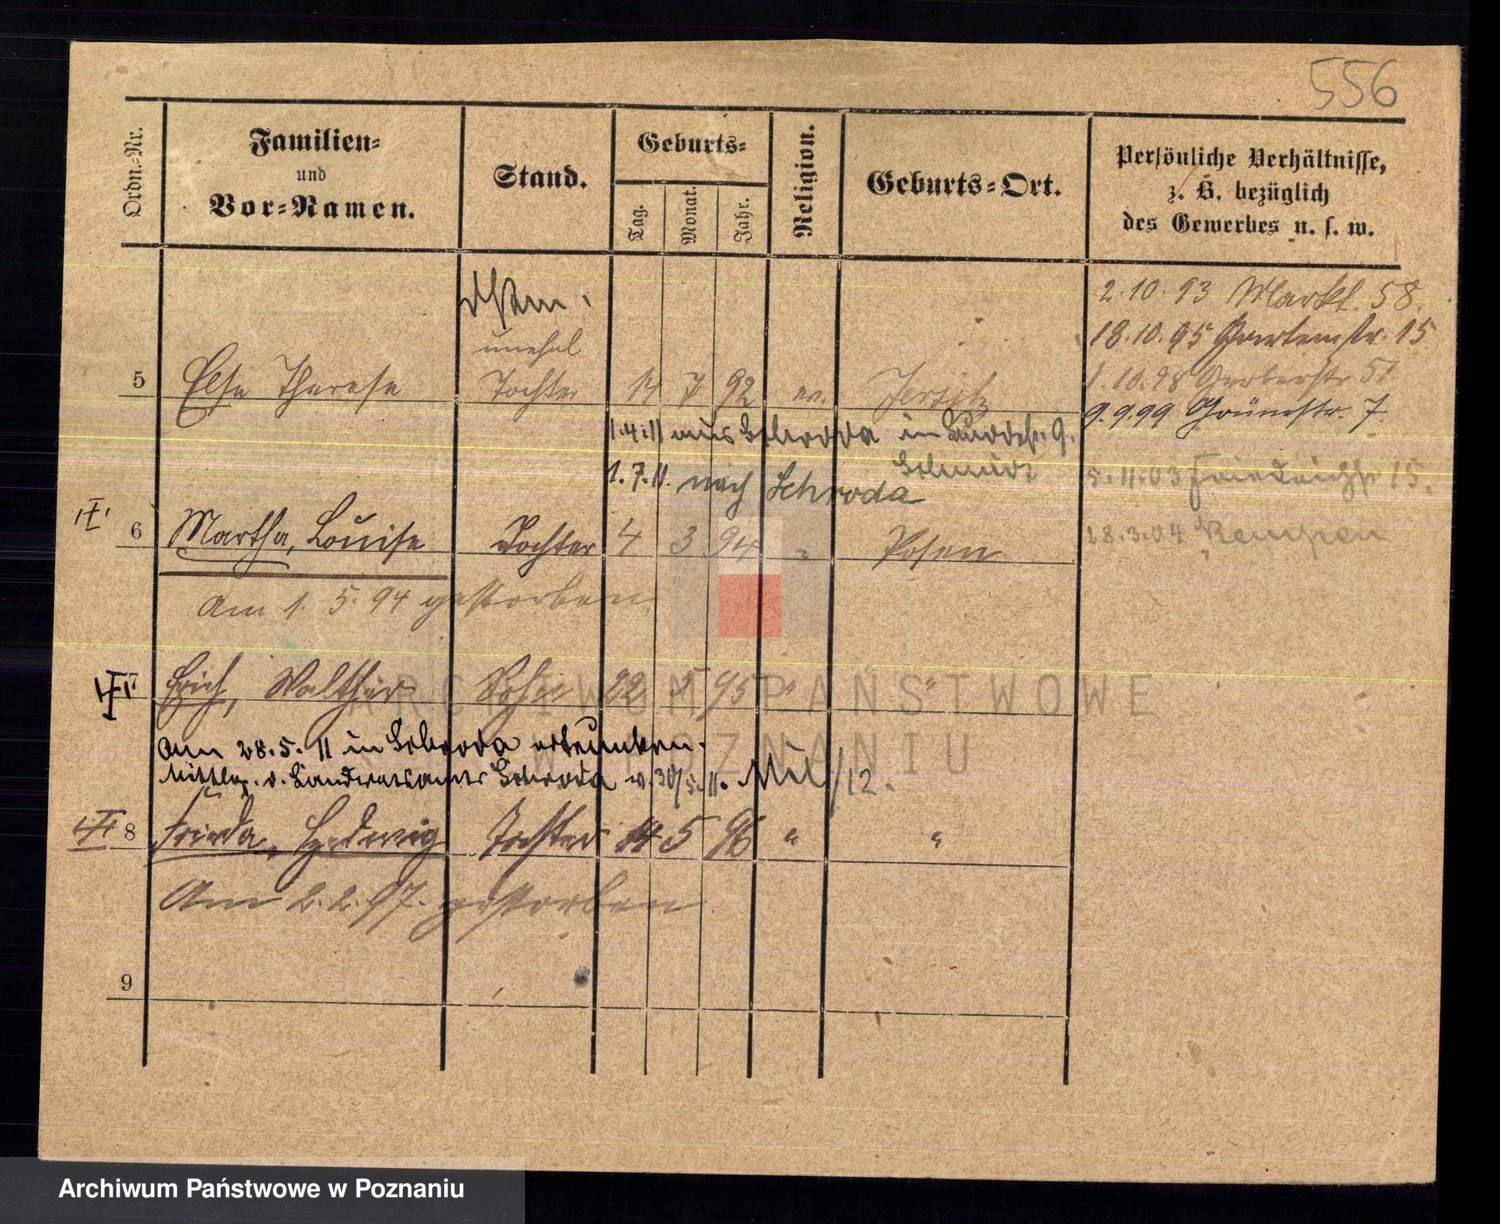 556
Ordn.=Nr.
Familien=
und
Vor=Namen.
Stand.
Geburts=
Tag.
Monat.
Jahr.
Religion.
Geburts=Ort.
Persönliche Verhältnisse,
z. B. bezüglich
des Gewerbes u. s. w.
2.10.93 Markt. 58.
18.10.95 Gartenstr. 15
unehel
5 Else Therese Tochter 14 7 92 ev. Jersitz
1.10.98 Gerberstr 51
9.9.99 Grünstr. 7
1.4.11 aus Schroda in
1.7.11. nach Schroda
5.11.03 Friedrichstr 15.
6 Martha, Louise Tochter 4 3 94 " Posen
28.3.04 Kempen
Am 1. 5. 94 gestorben
7 Erich, Walther Sohn 22 5 95 " "
am 28.5.11 in Schroda ertrunken.
Mittlg. d. Landratsamts Schroda v. 30/5.11. /12.
8 Frieda, Hedwig Tochter 14 5 96 " "
Am 2.2.97. gestorben.
9
ARCHIWUM PAŃSTWOWE
W POZNANIU
Archiwum Państwowe w Poznaniu